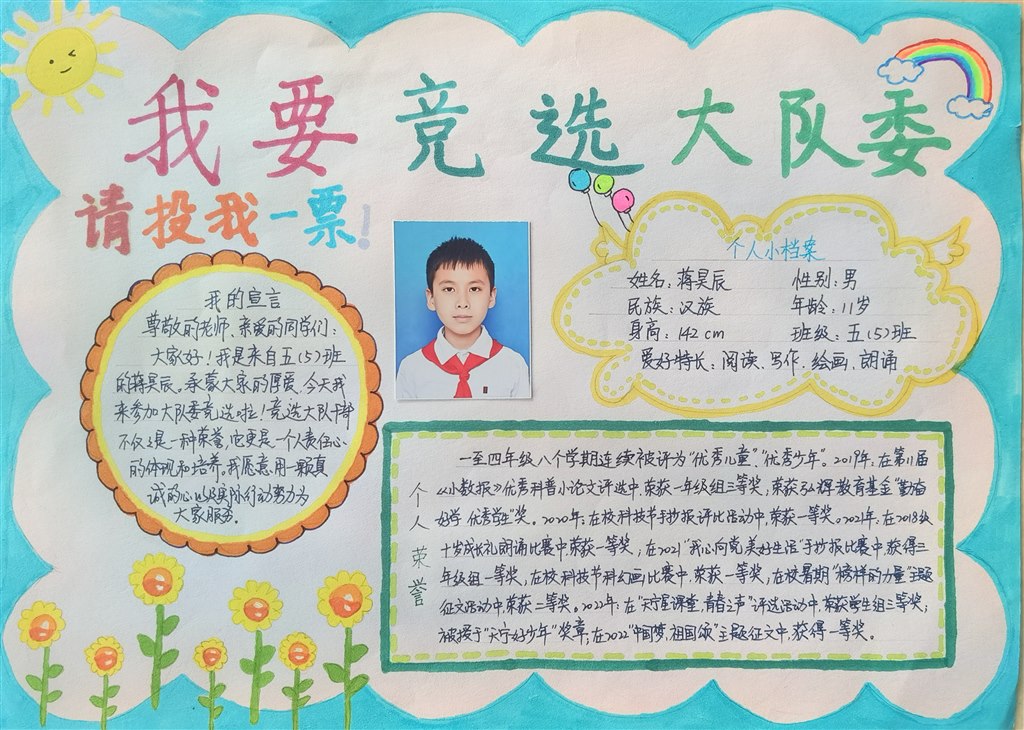 我要竞选大队委
请投我一票!
我的宣言
尊敬的老师、亲爱的同学们:
大家好!我是来自五(5)班
的蒋昊辰。承蒙大家的厚爱,今天我
来参加大队委竞选啦!竞选大队干部
不仅仅是一种荣誉,它更是一个人责任心
的体现和培养,我愿意用一颗真
诚的心,以及实际行动努力为
大家服务。
个人小档案
姓名:蒋昊辰 性别:男
民族:汉族 年龄:11岁
身高:142cm 班级:五(5)班
爱好特长:阅读、写作、绘画、朗诵
个人荣誉
一至四年级八个学期连续被评为“优秀儿童”、“优秀少年”。2019年:在第11届
《小数报》优秀科普小论文评选中,荣获一年级组三等奖;荣获弘辉教育基金“勤奋
好学 优秀学生”奖。2020年:在校科技节手抄报评比活动中,荣获一等奖。2021年:在2018级
十岁成长礼朗诵比赛中,荣获一等奖;在2021“我心向党 美好生活”手抄报比赛中,获得三
年级组一等奖;在校科技节科幻画比赛中,荣获一等奖;在校暑期“榜样的力量”主题
征文活动中,荣获二等奖。2022年:在“天宁星课堂,青春之声”评选活动中,荣获学生组三等奖;
被授予“天宁好少年”奖章;在2022“中国梦,祖国颂”主题征文中,获得一等奖。